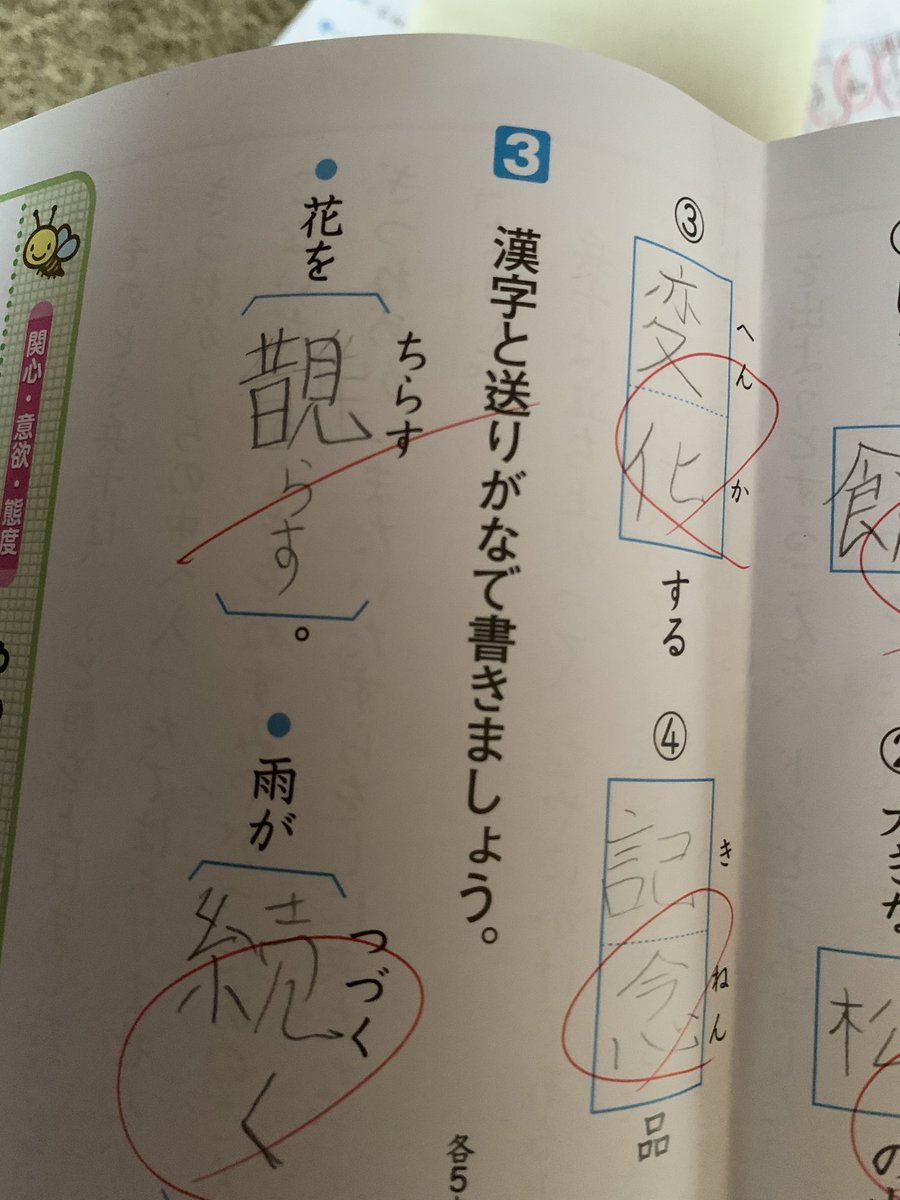 ②大きな
松の
③変化する
へんか
④記念品
きねん
3 漢字と送りがなで書きましょう。
各5
・花を〔らす〕。
ちらす
・雨が〔続く
つづく
関心・意欲・態度